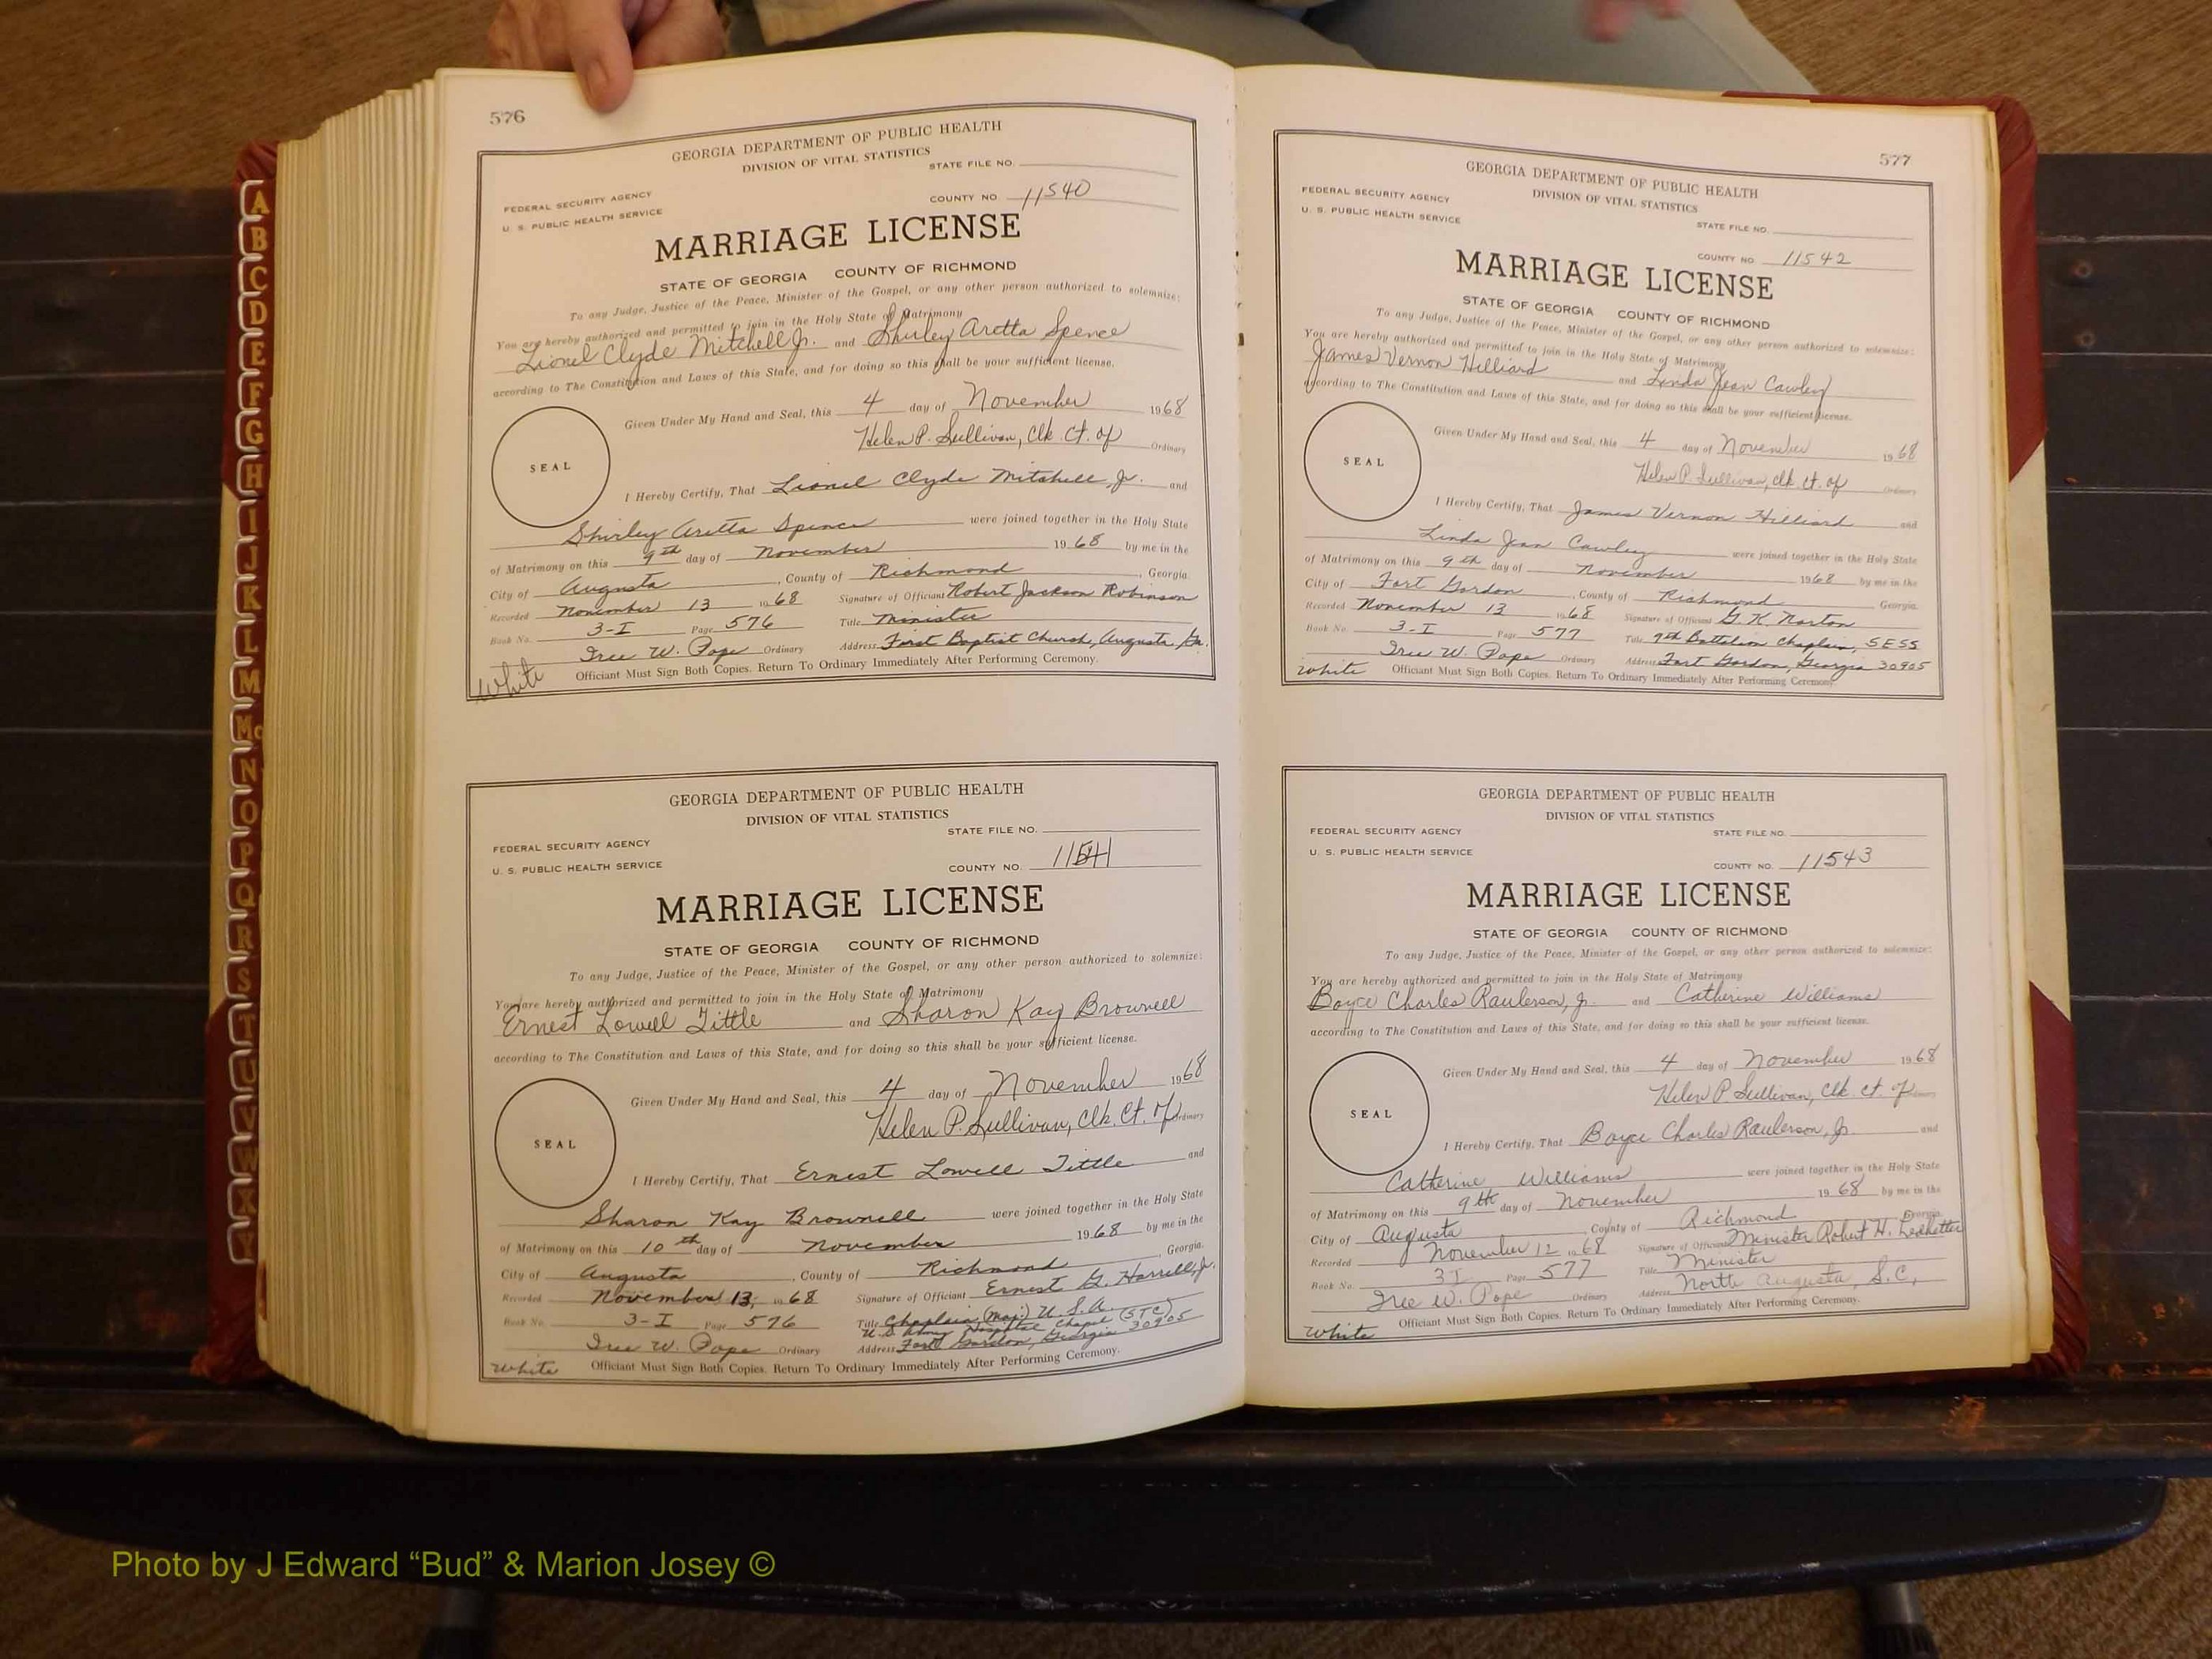 576
GEORGIA DEPARTMENT OF PUBLIC HEALTH
DIVISION OF VITAL STATISTICS
STATE FILE NO.
FEDERAL SECURITY AGENCY
COUNTY NO. 11540
U. S. PUBLIC HEALTH SERVICE
MARRIAGE LICENSE
STATE OF GEORGIA COUNTY OF RICHMOND
To any Judge, Justice of the Peace, Minister of the Gospel, or any other person authorized to solemnize:
You are hereby authorized and permitted to join in the Holy State of Matrimony
Lionel Clyde Mitchell Jr. and Shirley Aretta Spence
according to The Constitution and Laws of this State, and for doing so this shall be your sufficient license.
Given Under My Hand and Seal, this 4 day of November 1968
Helen P. Sullivan, Clk. Ct. of Ordinary
SEAL
I Hereby Certify, That Lionel Clyde Mitchell, Jr. and
Shirley Aretta Spence were joined together in the Holy State
of Matrimony on this 9th day of November 1968 by me in the
City of Augusta, County of Richmond, Georgia.
Recorded November 13 1968 Signature of Officiant Robert Jackson Robinson
Book No. 3-I Page 576 Title Minister
W. Pope Ordinary Address First Baptist Church, Augusta, Ga.
White Officiant Must Sign Both Copies. Return To Ordinary Immediately After Performing Ceremony.
GEORGIA DEPARTMENT OF PUBLIC HEALTH
DIVISION OF VITAL STATISTICS
STATE FILE NO.
FEDERAL SECURITY AGENCY
COUNTY NO. 11541
U. S. PUBLIC HEALTH SERVICE
MARRIAGE LICENSE
STATE OF GEORGIA COUNTY OF RICHMOND
To any Judge, Justice of the Peace, Minister of the Gospel, or any other person authorized to solemnize:
You are hereby authorized and permitted to join in the Holy State of Matrimony
Ernest Lowell Tittle and Sharon Kay Brownell
according to The Constitution and Laws of this State, and for doing so this shall be your sufficient license.
Given Under My Hand and Seal, this 4 day of November 1968
Helen P. Sullivan, Clk. Ct. of Ordinary
SEAL
I Hereby Certify, That Ernest Lowell Tittle and
Sharon Kay Brownell were joined together in the Holy State
of Matrimony on this 10th day of November 1968 by me in the
City of Augusta, County of Richmond, Georgia.
Recorded November 13, 1968 Signature of Officiant Ernest G. Harrell, Jr.
Book No. 3-I Page 576 Title Chaplain (Maj) U.S.A.
U.S. Army Hospital Chapel (STC)
W. Pope Ordinary Address Fort Gordon, Georgia 30905
White Officiant Must Sign Both Copies. Return To Ordinary Immediately After Performing Ceremony.
577
GEORGIA DEPARTMENT OF PUBLIC HEALTH
DIVISION OF VITAL STATISTICS
FEDERAL SECURITY AGENCY
U. S. PUBLIC HEALTH SERVICE
STATE FILE NO.
COUNTY NO. 11542
MARRIAGE LICENSE
STATE OF GEORGIA COUNTY OF RICHMOND
To any Judge, Justice of the Peace, Minister of the Gospel, or any other person authorized to solemnize:
You are hereby authorized and permitted to join in the Holy State of Matrimony
James Vernon Hilliard and Linda Jean Cawley
according to The Constitution and Laws of this State, and for doing so this shall be your sufficient license.
Given Under My Hand and Seal, this 4 day of November 1968
Helen P. Sullivan, Clk. Ct. of Ordinary
SEAL
I Hereby Certify, That James Vernon Hilliard and
Linda Jean Cawley were joined together in the Holy State
of Matrimony on this 9th day of November 1968 by me in the
City of Fort Gordon, County of Richmond Georgia.
Recorded November 13 1968 Signature of Officiant G. K. Norton
Book No. 3-I Page 577 Title 9th Battalion Chaplain, SESS
W. Pope Ordinary Address Fort Gordon, Georgia 30905
White Officiant Must Sign Both Copies. Return To Ordinary Immediately After Performing Ceremony.
GEORGIA DEPARTMENT OF PUBLIC HEALTH
DIVISION OF VITAL STATISTICS
FEDERAL SECURITY AGENCY
STATE FILE NO.
U. S. PUBLIC HEALTH SERVICE
COUNTY NO. 11543
MARRIAGE LICENSE
STATE OF GEORGIA COUNTY OF RICHMOND
To any Judge, Justice of the Peace, Minister of the Gospel, or any other person authorized to solemnize:
You are hereby authorized and permitted to join in the Holy State of Matrimony
Boyce Charles Raulerson, Jr. and Catherine Williams
according to The Constitution and Laws of this State, and for doing so this shall be your sufficient license.
Given Under My Hand and Seal, this 4 day of November 1968
Helen P. Sullivan, Clk. Ct. of Ordinary
SEAL
I Hereby Certify, That Boyce Charles Raulerson, Jr. and
Catherine Williams were joined together in the Holy State
of Matrimony on this 9th day of November 1968 by me in the
City of Augusta, County of Richmond Georgia.
Recorded November 12 1968 Signature of Officiant Minister Robert H. Ledbetter
Book No. 3I Page 577 Title Minister
W. Pope Ordinary Address North Augusta, S.C.
White Officiant Must Sign Both Copies. Return To Ordinary Immediately After Performing Ceremony.
A
B
C
D
E
F
G
H
I
J
K
L
M
Mc
N
O
P
Q
R
S
T
U
V
W
X
Y
Photo by J Edward “Bud” & Marion Josey ©